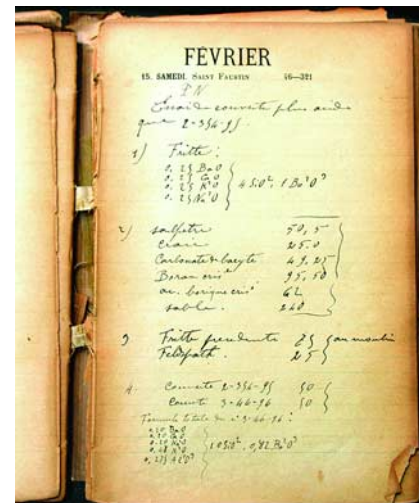 FÉVRIER
15. SAMEDI. SAINT FAUSTIN 46—321
P N
Essai de couverte plus acide
que 2-354-95.
1) Fritte :
0,25 BaO
0,25 CaO
0,25 K²O
0,25 Na²O
4 SiO², 1 Bo²O³
2) salpêtre 50,5
craie 25.0
Carbonate de baryte 49,25
Borax cris^é 95,50
ac. borique cris^é 62
sable. 240
3 Fritte précédente 75
Feldspath. 25
au moulin
4. Couverte 2-354-95 50
Couverte 3-46-96 50
Formule totale du n° 3-46-96 :
0,20 BaO
0,20 CaO